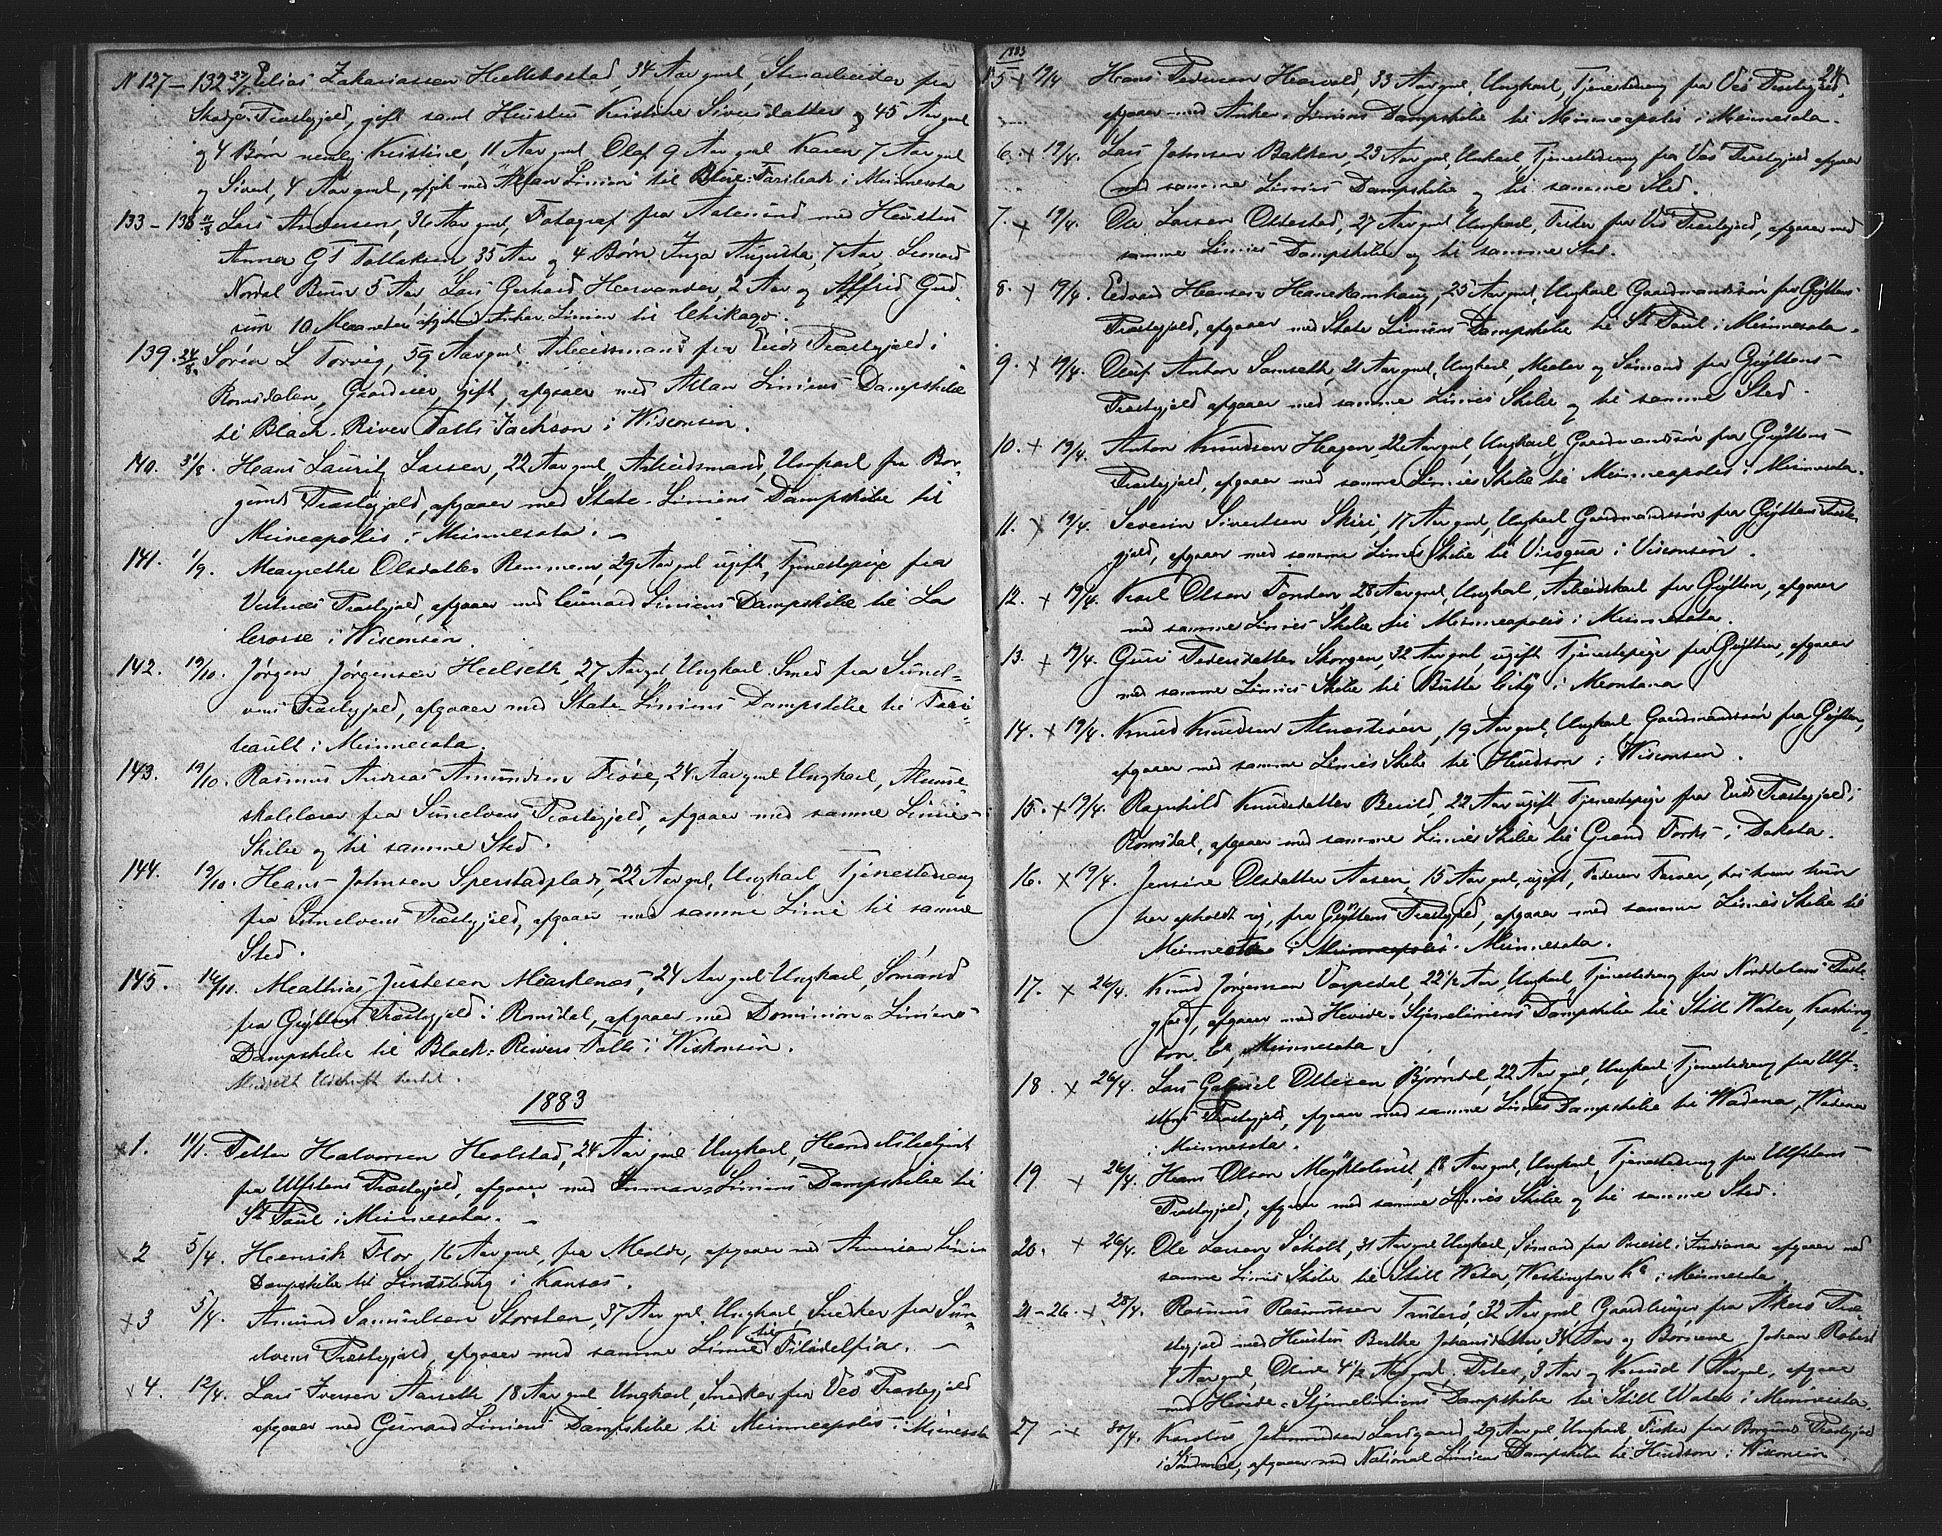 N 127-132 27/7 Elias Zakariassen Hellebostad, 34 Aar gml, Stenarbeider fra
Skodje Præstegjeld, gift samt Hustru Kristine Siversdatter 45 Aar gml
og 4 Børn nemlig Kristine, 11 Aar gml, Olaf 9 Aar gml Karen 7 Aar gml
og Sivert, 4 Aar gml, afgik med Allan Linien til Blue i Minnesota
133-138 Lars Andersen, 36 Aar gml, Fotograf fra Aalesund med Hustru
Anna G T Tollaksen 35 Aar og 4 Børn Inga Augusta, 7 Aar, Leonard
Nordal Bern 5 Aar, Lars Gerhard Hervander, 2 Aar og Alfrid Gud-
run 10 Maaneter, afgik med Anker Linien til Chikago.
139. 24/8. Søren L Torvig, 59 Aar gml, Arbeidsmand fra Eids Præstegjeld i
Romsdalen, Gaardeier, gift, afgaaer med Allan Liniens Dampskibe
til Black River Falls Jackson i Wisconsin.
140. 31/8. Hans Lauritz Larsen, 22 Aar gml, Arbeidsmand, Ungkarl fra Bor-
gunds Præstegjeld, afgaaer med State-Liniens Dampskibe til
Mineapolis i Minnesota.
141. 1/9. Margrethe Olsdatter Remmem, 29 Aar gml ugift, Tjenestepige fra
Vestnæs Præstegjeld, afgaaer med Cunard Liniens Dampskibe til La
Crosse i Wisconsin
142. 19/10. Jørgen Jørgensen Hellseth, 27 Aar gml, Ungkarl Smed fra Sunel-
vens Præstegjeld, afgaaer med State-Liniens Dampskibe til Fari-
bault i Minnesota.
143. 19/10. Rasmus Andreas Amundsen Frøse, 24 Aar gml Ungkarl, Almue-
skolelærer fra Sunelvens Præstegjeld, afgaaer med samme Linies
Skibe og til samme Sted.
144. 19/10. Hans Johnsen Sperstadplads, 22 Aar gml, Ungkarl, Tjenestedreng
fra Sunelvens Præstegjeld, afgaaer med samme Linie til samme
Sted.
145. 14/11. Mathias Justesen Mærkenæs, 24 Aar gml Ungkarl, Sømand
fra Gryttens Præstegjeld i Romsdal, afgaaer med Dominion-Liniens
Dampskibe til Black-Rivers Falls i Wiskonsin.
Udskrift
1883
x 1. 11/1. Petter Halvorsen Holstad, 24 Aar gml Ungkarl, Handelsbetjent
fra Ulfstens Præstegjeld, afgaaer med Inman-Liniens Dampskibe til
St Paul i Minnesota.
x 2 5/4. Henrik Flor, 16 Aar gml, fra Molde, afgaaer med American Linies
Dampskibe til Lindsburg i Kansas.
x 3 5/4. Amund Samuelsen Storsten, 37 Aar gml, Ungkarl, Snedker fra Sun-
elvens Præstegjeld, afgaaer med samme Linie til Filadelfia.
x 4. 12/4. Lars Iversen Aarseth 18 Aar gml Ungkarl, Snedker fra Veø Præstegjeld
afgaaer med Gunard Liniens Dampskibe til Minneapolis i Minesota
1883
24
5 x 19/4 Hans Pedersen Hervold, 33 Aar gml, Ungkarl, Tjenestedreng fra Veø Præstegjeld,
afgaaer med Anker-Liniens Dampskibe til Minneapolis i Minnesota.
6. x 19/4. Lars Johnsen Bakken, 23 Aar gml, Ungkarl, Tjenestedreng fra Veø Præstegjeld afgaaer
med samme Linies Dampskibe og til samme Sted.
7. x 19/4. Ole Larsen Oltestad, 27 Aar gml, Ungkarl, Fisker fra Veø Præstegjeld, afgaaer med
samme Linies Dampskibe og til samme Sted.
8. x 19/4. Edvard Hansen Hanekamhaug, 25 Aar gml, Ungkarl Gaardmandssøn fra Gryttens
Præstegjeld, afgaaer med State Liniens Dampskibe til St Paul i Minnesota.
9. x 19/4. Oluf Anton Samseth, 21 Aar gml, Ungkarl, Maler og Sømand fra Gryttens
Præstegjeld afgaaer med samme Linies Skibe og til samme Sted.
10. x 19/4. Anton Knudsen Hagen, 22 Aar gml, Ungkarl, Gaardmandssøn fra Gryttens
Præstegjeld, afgaaer med samme Linies Skibe til Minneapolis i Minnesota.
11. x 19/4. Severin Sivertsen Skiri, 17 Aar gml, Ungkarl Gaardmandssøn fra Gryttens Præste
gjeld, afgaaer med samme Linies Skibe til Viroqua i Visconsin.
12. x 19/4. Karl Olsen Tonder 28 Aar gml, Ungkarl, Arbeidskarl fra Grytten, afgaaer
med samme Linies Skibe til Minneapolis i Minnesota.
13. x 19/4. Guri Pedersdatter Skorgen, 32 Aar gml, ugift Tjenestepige fra Grytten, afgaaer
med samme Linies Skibe til Butte City i Montana
14. x 19/4. Knud Knudsen Alnæstrøen, 19 Aar gml, Ungkarl Gaardmandssøn fra Grytten,
afgaaer med samme Linies Skibe til Hudson i Wisconsin.
15. x 19/4. Ragnhild Knudsdatter Berild, 22 Aar ugift Tjenestepige fra Eids Præstegjeld i
Romsdal, afgaaer med samme Linies Skibe til Grand Forks i Dakota.
16. x 19/4. Jensine Olsdatter Aasen, 15 Aar gml, ugift, Faderen Farver, hos hvem hun
har opholdt sig, fra Gryttens Præstegjeld, afgaaer med samme Linies Skibe til
Minnesota i Minneapolis Minnesota.
17. x 26/4. Knud Jørgensen Varpedal, 22 1/2 Aar, Ungkarl, Tjenestedreng fra Norddalens Præste
gjeld, afgaaer med Hvide-Stjernelinens Dampskibe til Still Water, Washing-
ton Co Minnesota.
18. x 26/4. Lars Gabriel Ottesen Bjørndal, 22 Aar gml, Ungkarl, Tjenestedreng fra Ulf-
stens Præstegjeld, afgaaer med samme Linies Dampskibe til Wadena, Wadena
i Minnesota.
19 x 26/4. Hans Olsen Myklebust, 18 Aar gml, Ungkarl, Tjenestedreng fra Ulfstens
Præstegjeld, afgaaer med samme Linies Skibe og til samme Sted.
20. x 26/4. Ole Larsen Søholt, 31 Aar gml Ungkarl, Sømand fra i Indiana afgaaer med
samme Linies Skibe til Still Water, Washington i Minnesota
21-26. x 28/4. Rasmus Rasmussen Tanterø, 32 Aar gml, Gaardbruger fra Akerø Præ-
stegjeld med Hustru Berthe Johansdatter, 34 Aar og Børnene Johan Robert
7 Aar gml, Oline 4 1/2 Aar gml, Peter, 3 Aar og Knud 1 Aar gml, afgaaer
med Hvide-Stjernelinens Dampskibe til Still Water i Minnesota.
27 x 30/4. Karolus Johnsen Aar gml, Ungkarl, Fisker fra Borgunds Præstegjeld
i Søndmøre, afgaaer med National Liniens Dampskibe til Hudson i Wisconsin.